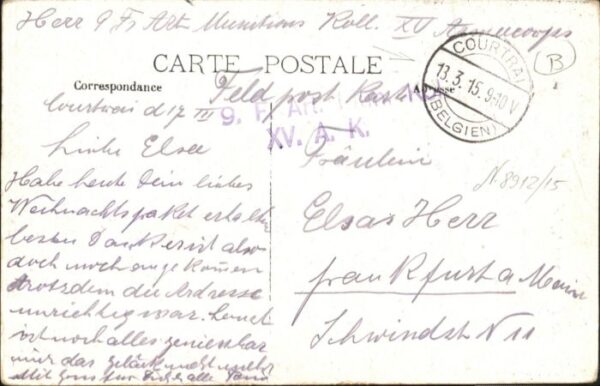 Herr 9 Fs Art Munitions Koll. XV Armeecorps
CARTE POSTALE
Correspondance
Adresse
Feldpost Karte
COURTRAI
13.3.15.9-10V
(BELGIEN)
B
9. F. Art. 
XV. A. K.
N 8912/15
Courtrai d 12 III
Liebe Elsa
Habe heute Dein liebes
Weihnachtspaket erhalten
besten Dank es ist also
doch noch angekommen
trotzdem die Adresse
unrichtig war. 
ist noch alles geniessbar
nur das
Mit Gruss für Dich & alle
Fräulein
Elsas Herr
Frankfurt a Main
Schwindst N 11